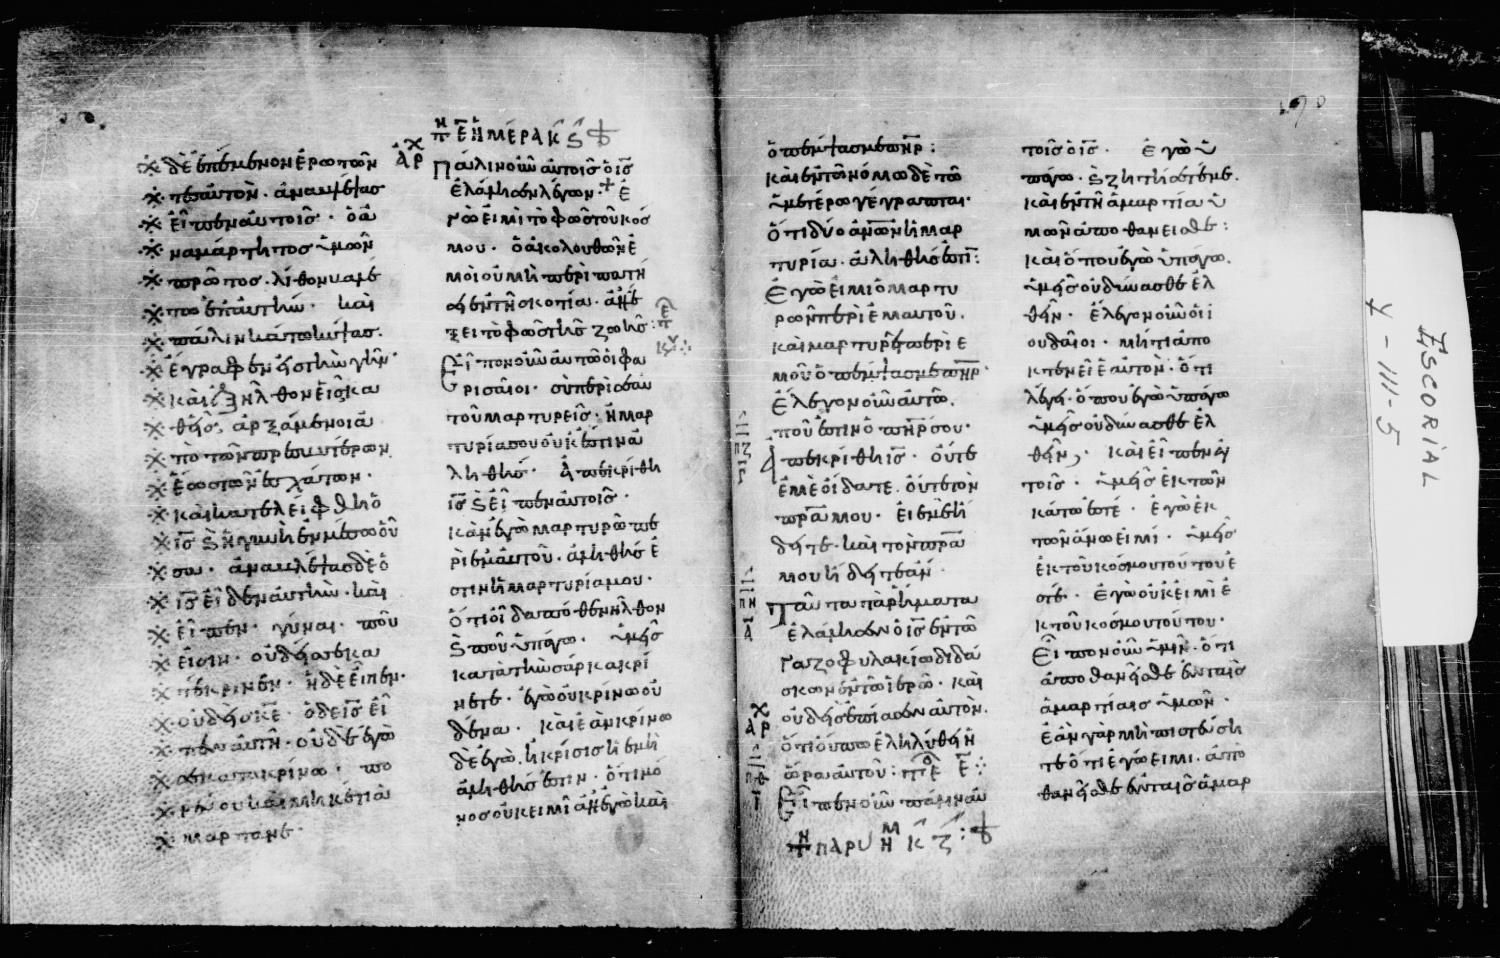 δὲ ἐπέμενον ἐρωτῶν
τες αὐτὸν · ἀνακύψας
εἶπεν αὐτοῖς · ὁ ἀ
ναμάρτητος ὑμῶν
πρῶτος · λίθον
πάλιν κάτω κύψας ·
ἔγραφεν εἰς τὴν γῆν ·
καὶ ἐξῆλθον εἷς κα
θεῖς, ἀρξάμενοι ἀ
πὸ τῶν πρεσβυτέρων
ἕως τῶν ἐσχάτων ·
καὶ κατελείφθη ὁ
ι̅ς̅ καὶ ἡ γυνὴ ἐν μέσῳ οὖ
σα · ἀνακύψας δὲ ὁ
ι̅ς̅ εἶδεν αὐτὴν · καὶ
εἶπεν · γύναι · ποῦ
εἰσιν · οὐδείς σε κα
τέκρινεν · ἡ δὲ εἶπεν ·
οὐδεὶς κ̅ε̅ · ὁ δὲ ι̅ς̅ εἶ
πεν αὐτῇ · οὐδὲ ἐγώ
σε κατακρίνω · πο
ρεύου καὶ μηκέτι ἁ
μάρτανε ·
ΑΡΧ
ΠΑΛΙΝ οὖν αὐτοῖς ὁ ι̅ς̅
ἐλάλησεν λέγων · + Ἐ
γώ εἰμι τὸ φῶς τοῦ κόσ
μου · ὁ ἀκολουθῶν ἐ
μοὶ οὐ μὴ περιπατή
σει ἐν τῇ σκοτίᾳ · ἀλλ᾽ ἕ
ξει τὸ φῶς τῆς ζωῆς :
Εἶπον οὖν αὐτῷ οἱ φα
ρισαῖοι · σὺ περὶ σεαυ
τοῦ μαρτυρεῖς · ἡ μαρ
τυρία σου οὐκ ἔστιν ἀ
ληθής · Ἀπεκρίθη
ι̅ς̅ καὶ εἶπεν αὐτοῖς ·
κἂν ἐγὼ μαρτυρῶ πε
ρὶ ἐμαυτοῦ · ἀληθής ἐ
στιν ἡ μαρτυρία μου ·
ὅτι οἶδα πόθεν ἦλθον
καὶ ποῦ ὑπάγω · ὑμεῖς
κατὰ τὴν σάρκα κρί
νετε · ἐγὼ οὐ κρίνω οὐ
δένα · καὶ ἐὰν κρίνω
δὲ ἐγώ · ἡ κρίσις ἡ ἐμὴ
ἀληθής ἐστιν · ὅτι μό
νος οὐκ εἰμὶ ἀλλ᾽ ἐγὼ καὶ
ὁ πέμψας με π̅η̅ρ̅ :
καὶ ἐν τῷ νόμῳ δὲ τῷ
ὑμετέρῳ γέγραπται ·
ὅτι δύο ἀ̅ν̅ω̅ν̅ ἡ μαρ
τυρία · ἀληθής ἐστι :
Ἐγώ εἰμι ὁ μαρτυ
ρῶν περὶ ἐμαυτοῦ ·
καὶ μαρτυρεῖ περὶ ἐ
μοῦ ὁ πέμψας με π̅η̅ρ̅ ·
Ἔλεγον οὖν αὐτῷ ·
ποῦ ἐστιν ὁ π̅η̅ρ̅ σου ·
Ἀπεκρίθη ι̅ς̅ · οὔτε
ἐμὲ οἴδατε · οὔτε τὸν
π̅ρ̅α̅ μου · εἰ ἐμὲ ᾔ
δειτε · καὶ τὸν π̅ρ̅α̅
μου ᾔδειτε ἄν ·
Ταῦτα τὰ ῥήματα
ἐλάλησεν ὁ ι̅ς̅ ἐν τῷ
γαζοφυλακίῳ διδά
σκων ἐν τῷ ἱερῷ · καὶ
οὐδεὶς ἐπίασεν αὐτὸν ·
ὅτι οὔπω ἐληλύθει ἡ
ὥρα αὐτοῦ :
Εἶπεν οὖν πάλιν αὐ
τοῖς ὁ ι̅ς̅ · Ἐγὼ ὑ
πάγω · καὶ ζητήσετέ με ·
καὶ ἐν τῇ ἁμαρτίᾳ ὑ
μῶν ἀποθανεῖσθε :
καὶ ὅπου ἐγὼ ὑπάγω ·
ὑμεῖς οὐ δύνασθε ἐλ
θεῖν · ἔλεγον οὖν οἱ ἰ
ουδαῖοι · μήτι ἀπο
κτενεῖ ἑαυτὸν · ὅτι
λέγει · ὅπου ἐγὼ ὑπάγω
ὑμεῖς οὐ δύνασθε ἐλ
θεῖν · καὶ εἶπεν αὐ
τοῖς · ὑμεῖς ἐκ τῶν
κάτω ἐστέ · ἐγὼ ἐκ
τῶν ἄνω εἰμί · ὑμεῖς
ἐκ τοῦ κόσμου τούτου ἐ
στέ · ἐγὼ οὐκ εἰμὶ ἐ
κ τοῦ κόσμου τούτου ·
Εἶπον οὖν ὑμῖν · ὅτι
ἀποθανεῖσθε ἐν ταῖς
ἁμαρτίαις ὑμῶν ·
ἐὰν γὰρ μὴ πιστεύση
τε ὅτι ἐγώ εἰμι · ἀπο
θανεῖσθε ἐν ταῖς ἁμαρ
ESCORIAL
Y-III-5